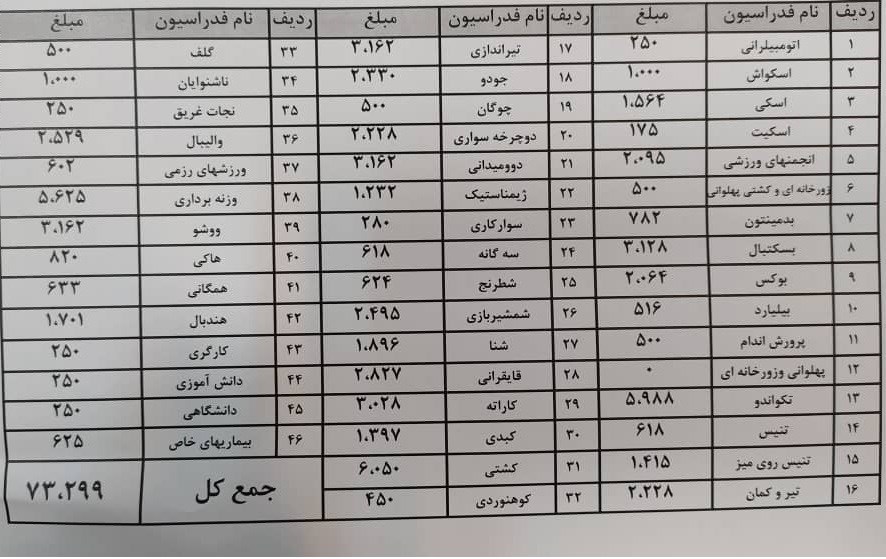 ردیف نام فدراسیون مبلغ ردیف نام فدراسیون مبلغ ردیف نام فدراسیون مبلغ
۱ اتومبیلرانی ۲۵۰ ۱۷ تیراندازی ۳.۱۶۲ ۳۳ گلف ۵۰۰
۲ اسکواش ۱.۰۰۰ ۱۸ جودو ۲.۳۳۰ ۳۴ ناشنوایان ۱.۰۰۰
۳ اسکی ۱.۵۶۴ ۱۹ چوگان ۵۰۰ ۳۵ نجات غریق ۲۵۰
۴ اسکیت ۱۷۵ ۲۰ دوچرخه سواری ۲.۲۲۸ ۳۶ والیبال ۲.۵۲۹
۵ انجمنهای ورزشی ۲.۰۹۵ ۲۱ دوومیدانی ۳.۱۶۲ ۳۷ ورزشهای رزمی ۶۰۲
۶ زورخانه ای و کشتی پهلوانی ۵۰۰ ۲۲ ژیمناستیک ۱.۲۳۲ ۳۸ وزنه برداری ۵.۶۲۵
۷ بدمینتون ۷۸۲ ۲۳ سوارکاری ۲۸۰ ۳۹ ووشو ۳.۱۶۲
۸ بسکتبال ۳.۱۲۸ ۲۴ سه گانه ۶۱۸ ۴۰ هاکی ۸۲۰
۹ بوکس ۲.۰۶۴ ۲۵ شطرنج ۶۲۴ ۴۱ همگانی ۶۳۳
۱۰ بیلیارد ۵۱۶ ۲۶ شمشیربازی ۲.۴۹۵ ۴۲ هندبال ۱.۷۰۱
۱۱ پرورش اندام ۵۰۰ ۲۷ شنا ۱.۸۹۶ ۴۳ کارگری ۲۵۰
۱۲ پهلوانی وزورخانه ای ۰ ۲۸ قایقرانی ۲.۸۲۷ ۴۴ دانش آموزی ۲۵۰
۱۳ تکواندو ۵.۹۸۸ ۲۹ کاراته ۳.۰۲۸ ۴۵ دانشگاهی ۲۵۰
۱۴ تنیس ۶۱۸ ۳۰ کبدی ۱.۳۹۷ ۴۶ بیماریهای خاص ۶۲۵
۱۵ تنیس روی میز ۱.۴۱۵ ۳۱ کشتی ۶.۰۵۰ جمع کل ۷۳.۲۹۹
۱۶ تیر و کمان ۲.۲۲۸ ۳۲ کوهنوردی ۴۵۰